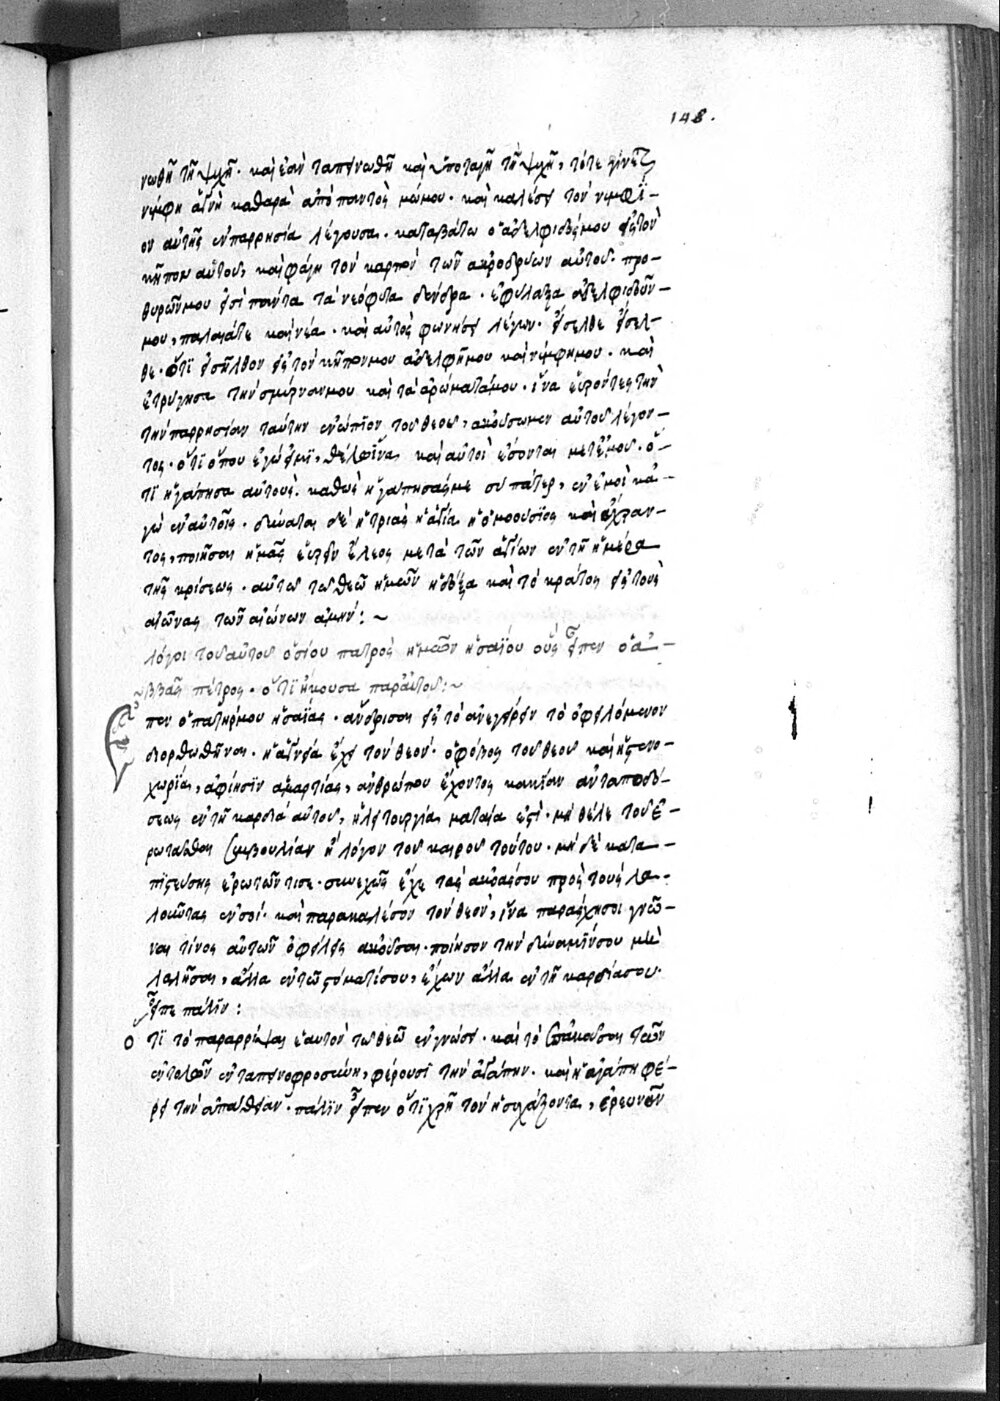 148.
νωθῆ τῆ ψυχῆ. καὶ ἐὰν ταπεινωθῆ καὶ ὑποταγῆ τῆ ψυχῆ, τότε γίνεται
νύμφη ἁγνὴ καθαρὰ ἀπὸ παντὸς μώμου. καὶ καλέσει τὸν νυμφί-
ον αὐτῆς ἐν παρρησία λέγουσα. καταβάτω ὁ ἀδελφιδός μου εἰς τὸν
κῆπον αὐτοῦ, καὶ φάγη τὸν καρπὸν τῶν ἀκροδρύων αὐτοῦ. προ-
θυρῶν μου εἰσὶ πάντα τὰ νεόφυτα δένδρα. ἐφύλαξα ἀδελφιδῶν-
μου, παλαιά τε καὶ νέα. καὶ αὐτὸς φωνήσει λέγων. εἴσελθε εἴσελ-
θε. ὅτι εἰσῆλθον εἰς τὸν κῆπον μου ἀδελφή μου καὶ νύμφη μου. καὶ
ἐτρύγησα τὴν σμύρναν μου καὶ τὰ ἀρώματά μου. ἵνα εὑρόντες τὴν
τὴν παρρησίαν ταύτην ἐνώπιον τοῦ θεοῦ, ἀκούσωμεν αὐτοῦ λέγον-
τος. ὅτι ὅπου ἐγώ εἰμι, θέλω ἵνα καὶ αὐτοὶ ἔσονται μετ' ἐμοῦ. ὅ-
τι ἠγάπησα αὐτούς. καθὼς ἠγάπησάς με σὺ πάτερ, ἐν ἐμοὶ κα-
γὼ ἐν αὐτοῖς. δύναται δὲ ἡ τριὰς ἡ ἁγία ἡ ὁμοούσιος καὶ ἄχραν-
τος, ποιῆσαι ἡμᾶς εὑρεῖν ἔλεος μετὰ τῶν ἁγίων ἐν τῆ ἡμέρα
τῆς κρίσεως. αὐτῶ τῶ θεῶ ἡμῶν ἡ δόξα καὶ τὸ κράτος εἰς τοὺς
αἰῶνας τῶν αἰώνων ἀμήν: ~
λόγοι τοῦ αὐτοῦ ὁσίου πατρὸς ἡμῶν ἡσαΐου οὓς εἶπεν ὁ ἀ-
ββᾶς πέτρος. ὅτι ἤκουσα παρ' αὐτοῦ: ~
Εἶπεν ὁ πατήρ μου ἡσαΐας. ἀνδρίσαι εἰς τὸ ἀνεγείρειν τὸ ὀφειλόμενον
διορθωθῆναι. ἡ ἁγνεία ἔχει τὸν θεόν. ὁ φόβος τοῦ θεοῦ καὶ ἡ στενο-
χωρία, ἀφίησιν ἁμαρτίας, ἀνθρώπου ἔχοντος κακίαν ἀνταποδό-
σεως ἐν τῆ καρδία αὐτοῦ, ἡ λειτουργία ματαία ἐστί. μὴ θέλε τοῦ ἐ-
ρωτᾶσθαι συμβουλίαν ἢ λόγον τοῦ καιροῦ τούτου. μὴ δὲ κατα-
πιστεύσης ἐρωτῶντι σε. συνεχῶς ἔχε τὰς ἀκοάς σου πρὸς τοὺς λα-
λοῦντας ἐν σοί. καὶ παρακαλέσον τὸν θεὸν, ἵνα παράσχη σοι γνῶ-
ναι τίνος αὐτῶν ὀφείλεις ἀκοῦσαι. ποίησον τὴν δύναμίν σου μὴ
λαλῆσαι, ἄλλα ἐν τῶ στόματί σου, ἔχων ἄλλα ἐν τῆ καρδία σου.
εἶπε πάλιν:
Ὅτι τὸ παραρρίψαι ἑαυτὸν τῶ θεῶ ἐν γνώσει. καὶ τὸ ὑπακοῦσαι τῶν
ἐντολῶν ἐν ταπεινοφροσύνη, φέρουσι τὴν ἀγάπην. καὶ ἡ ἀγάπη φέ-
ρει τὴν ἀπάθειαν. πάλιν εἶπεν ὅτι χρὴ τὸν ἡσυχάζοντα, ἐρευνᾶν